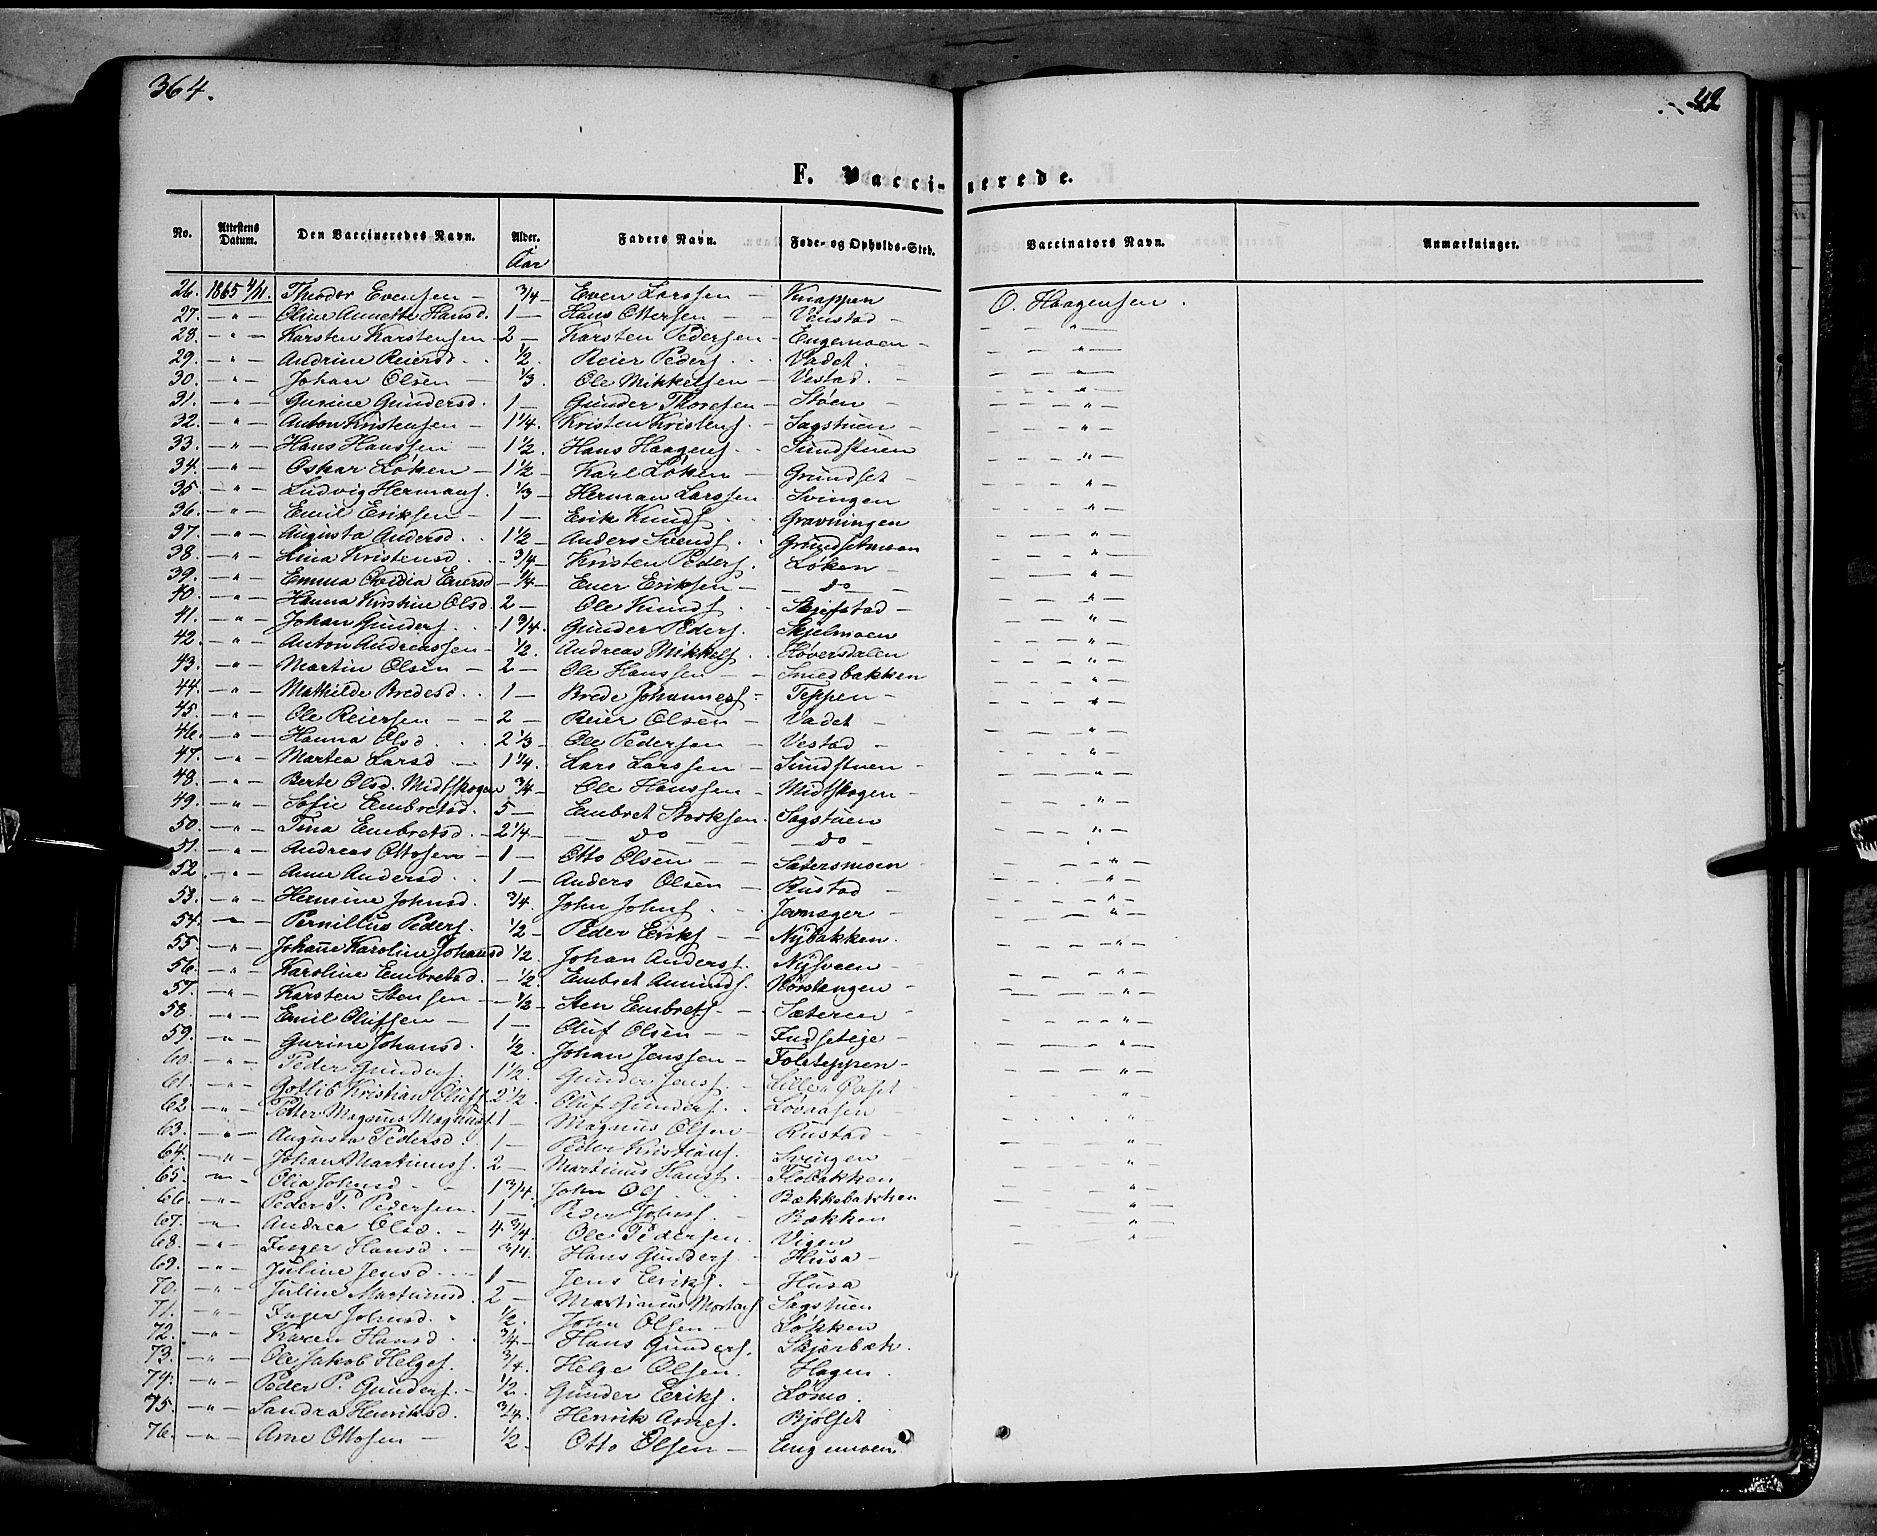 364.
42
F. Vaccinerede.
No. Attestens Datum. Den Vaccineredes Navn. Alder. Faders Navn. Føde- og Opholds-Sted. Vaccinators Navn. Anmærkninger.
Aar
26. 1865 4/11. Theodor Evensen — 3/4 — Even Larssen — Knappen O. Haagensen.
27. — " — Oline Annette Hansd. 1 — Hans Ottersen — Venstad — — " —
28. — " — Karsten Karstensen 2 — Karsten Pedersen — Engemoen — — " —
29. — " — Andrine Reiersd. 1/2. Reier Peders. Vadet. — " —
30. — " — Johan Olsen — 1/3. Ole Mikkelsen — Vestad. — " —
31. — " — Gurine Gundersd. 1 — Gunder Thoresen — Støen — — " —
32. — " — Anton Kristensen — 1 1/4. Kristen Kristens. Sagstuen — — " —
33. — " — Hans Hanssen — 1 1/2 Hans Haagens. Sundstuen — " —
34. — " — Oskar Løken — 1 1/2 — Karl Løken — Grundset — — " —
35. — " — Ludvig Hermans. 1/3 — Herman Larssen Svingen — " —
36. — " — Emil Eriksen — 1 — Erik Knuds. Gravningen — " —
37. — " — Augusta Andersd. 1 1/2 — Anders Svends. Grundsetmoen — " —
38. — " — Lina Kristensd. — 3/4 — Kristen Peders. Løken — — " —
39. — " — Emma Eversd — 1/4 — Ever Eriksen — do — — " —
40. — " — Hanna Kirstine Olsd. 2 — Ole Knuds. Skjefstad — — " —
41. — " — Johan Gunders. 1 3/4. Gunder Peders. Skjelmoen — " —
42. — " — Anton Andreassen — 1/2. Andreas Mikkels. Høversdalen — " —
43. — " — Martin Olsen — 2 — Ole Hanssen — Smedbakken — " —
44. — " — Mathilde Bredesd. 1 — Brede Johanness — Teppen — — " —
45. — " — Ole Reiersen — 2 — Reier Olsen — Vadet — — " —
46. — " — Hanna Olsd. 2 1/3 — Ole Pedersen — Vestad — — " —
47. — " — Martea Larsd — 1 1/4. Lars Larssen — Sundstuen — — " —
48. — " — Berte Olsd. Midtskogen 3/4 — Ole Hanssen — Midtskogen — — " —
49. — " — Sofie Embretsd. 5 — Embret Storksen. Sagstuen — " —
50. — " — Tina Embretsd. — 2 1/4 — do — do — — " —
51. — " — Andreas Ottosen — 1 — Otto Olsen — Sætersmoen — " —
52. — " — Anne Andersd. 1 — Anders Olsen — Rustad — — " —
53. — " — Hermine Johnsd. 3/4. John Johns. Jernager — — " —
54. — " — Pernillus Peders. 1/2 — Peder Eriks — Nybakken. — " —
55. — " — Johanne Karoline Johansd 1/2. Johan Anders. Nysveen — — " —
56. — " — Karoline Embretsd. — 1/2. Embret Amunds. Kørstangen — — " —
57. — " — Karsten Stensen — 1/2 — Sten Embrets. — Sæteren — — " —
58. — " — Emil Olufsen — 1 — Oluf Olsen — Indseteje — — " —
59. — " — Gurine Johansd. 1/2. Johan Jenssen — Foleteppen — — " —
60. — " — Peder Gunders. 1 1/2. Gunder Jens. — Lillea — — " —
61. — " — Gotlib Kristian Olufs. 2 1/2. Oluf Gunders. — Løvaasen — " —
62. — " — Petter Magnus Magnus. 1 — Magnus Olsen — Rustad — — " —
63. — " — Augusta Pedersd. 1 — Peder Kristians. Svingen — — " —
64. — " — Johan Martinus. 2 — Martinus Hans. — Flobakken — " —
65. — " — Olia Johnsd — 1 3/4. John Ols. Bækkebakken — " —
66. — " — Peder P. Pedersen. 1 — Peder Johns. — Bækken — " —
67. — " — Andrea Olsd. — 4 3/4. Ole Pedersen. Vigen — " —
68. — " — Inger Hansd. — 3/4. Hans Gunders — Husa — — " —
69. — " — Juline Jensd — 1 — Jens Eriks. — Husa
70. — " — Juline Martinusd. 2 — Martinus Mortens Sagstuen
71. — " — Inger Johnsd. 1/2. John Olsen — Løkken
72. — " — Karen Hansd. 3/4 — Hans Gunders. Skjærbæk.
73. — " — Ole Jakob Helges. 3/4. Helge Olsen. Hagen.
74. — " — Peder P. Gunders. — 1/2. Gunder Eriks. Lømo.
75 — " — Sandra Henriksd. 3/4. Henrik Arnes. Bjølset
76. — " — Arne Ottosen — 1/2. Otto Olsen — Engemoen